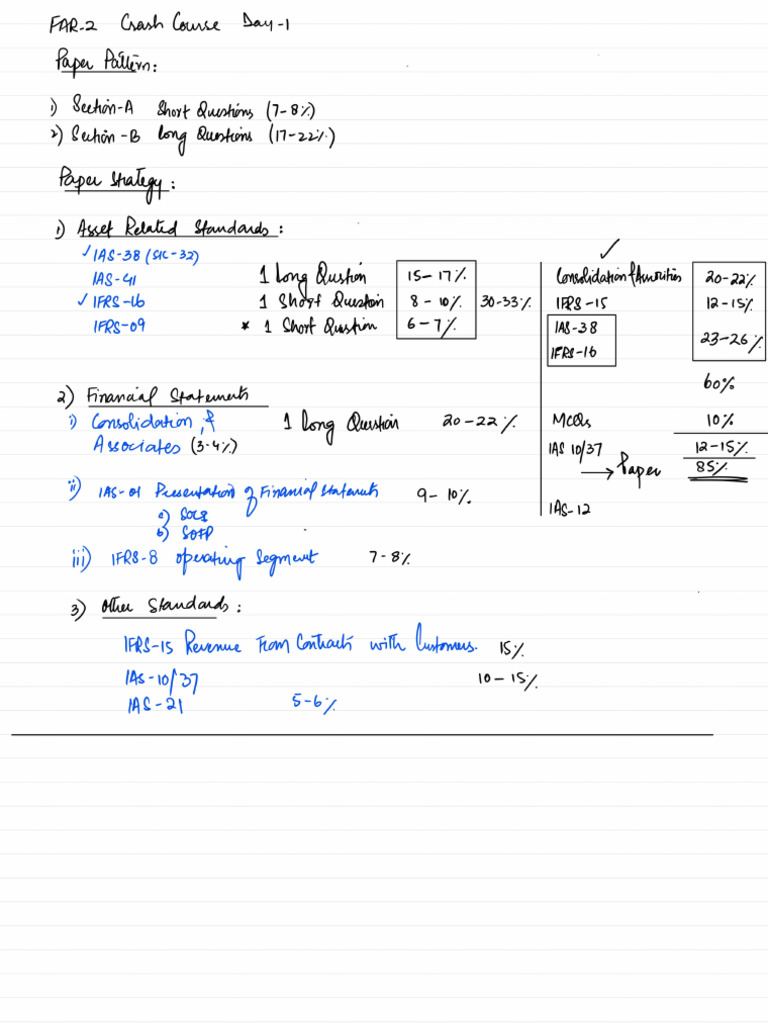 FAR-2 Crash Course Day-1
Paper Pattern:
1) Section-A Short Questions (7-8%)
2) Section-B Long Questions (17-22%)
Paper Strategy:
1) Asset Related Standards:
✓ IAS-38 (SIC-32)
IAS-41 1 Long Question 15-17%
✓ IFRS-16 1 Short Question 8-10% 30-33%
IFRS-09 * 1 Short Question 6-7%
2) Financial Statements
i) Consolidation & 1 Long Question 20-22%
Associates (3-4%)
ii) IAS-01 Presentation of Financial Statements 9-10%
a) SOCE
b) SOFP
iii) IFRS-8 Operating Segment 7-8%
3) Other Standards:
IFRS-15 Revenue From Contracts with Customers. 15%
IAS-10/37 10-15%
IAS-21 5-6%
✓
Consolidation & 20-22%
IFRS-15 12-15%
IAS-38
IFRS-16 23-26%
60%
MCQs 10%
IAS 10/37 12-15%
→ Paper 85%
IAS-12